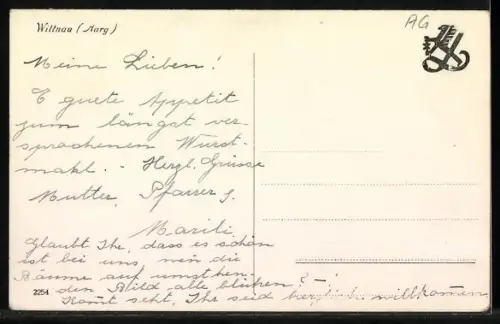 Wittnau (Aarg)
AG
Meine Lieben!
E guete Appetit
zum längst ver-
sprochenen Wurst-
mahl. - Herzl. Grüsse
Mutter, Pfarrer
Marili
Glaubt Ihr, dass es schön
ist bei uns, wen die
Bäume auf umstehen-
den Bild alle blühen? -
Komt seht, Ihr seid herzlich willkomen
2254